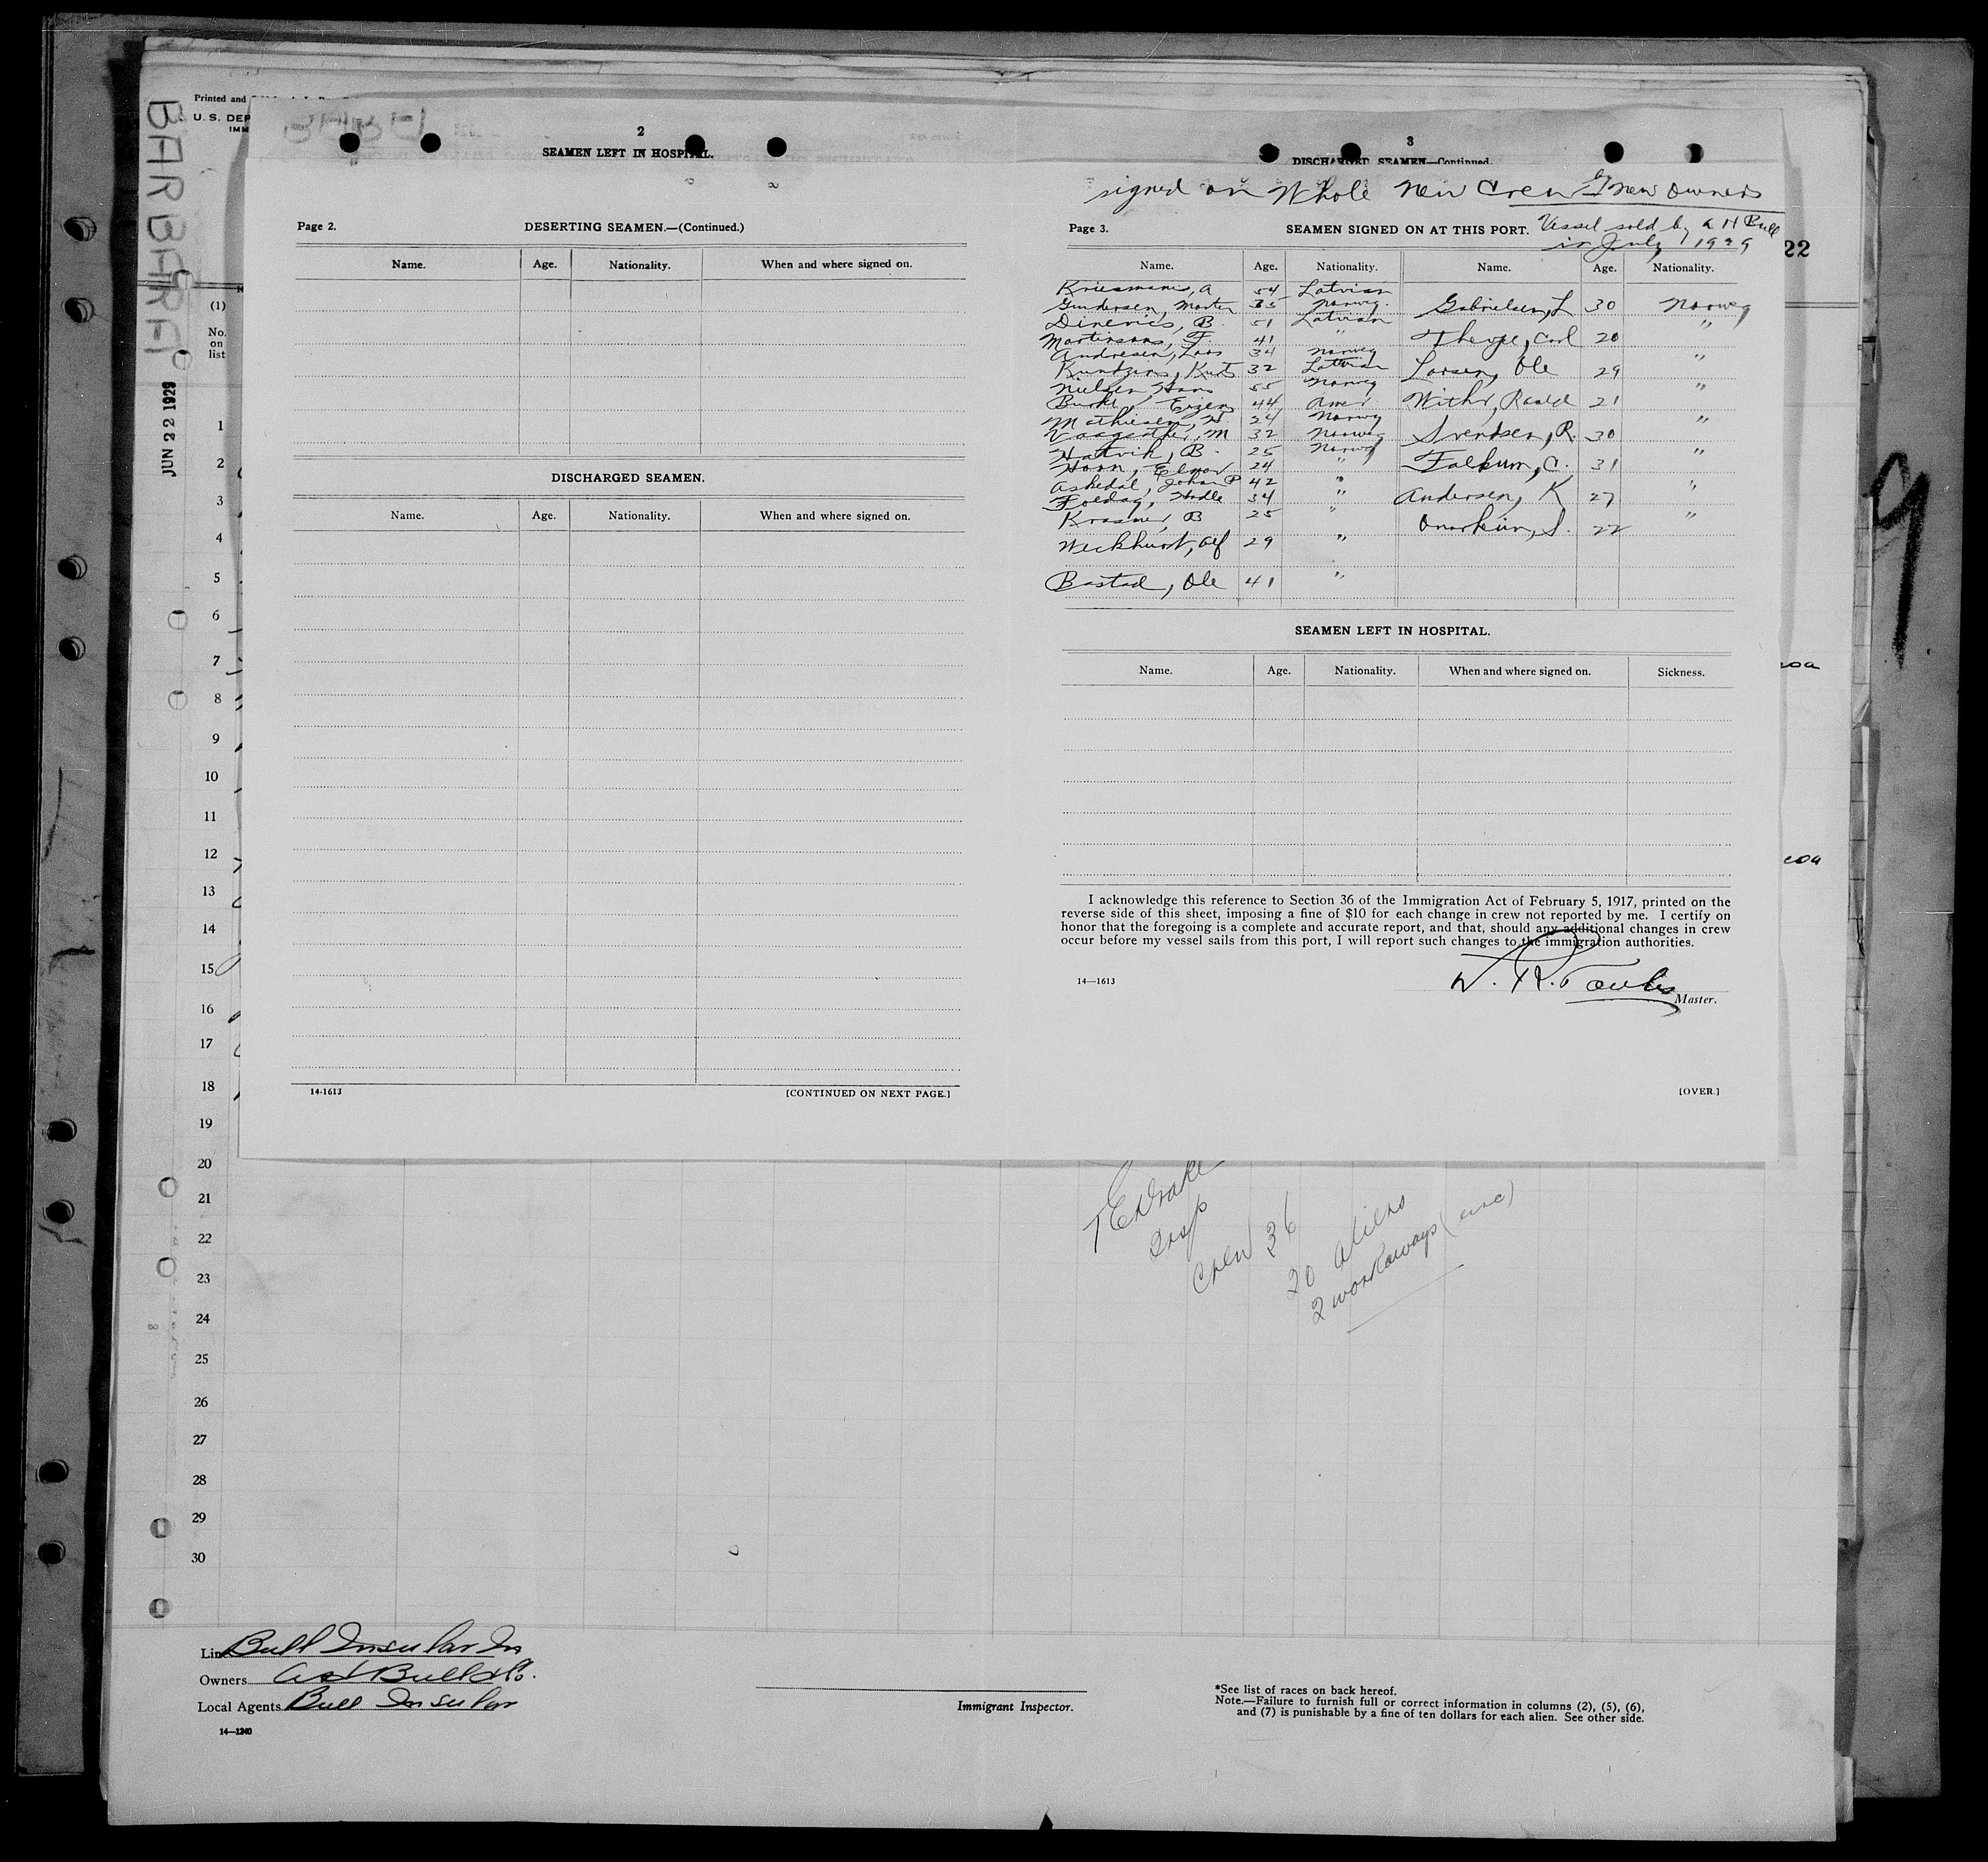 BARBARA
JUN 22 1929
Printed and
U. S. DEP
IMM
(1)
No.
on
list
1
2
3
4
5
6
7
8
9
10
11
12
13
14
15
16
17
18
19
20
21
22
23
24
25
26
27
28
29
30
2
SEAMEN LEFT IN HOSPITAL.
Page 2.
DESERTING SEAMEN.—(Continued.)
Name. Age. Nationality. When and where signed on.
DISCHARGED SEAMEN.
Name. Age. Nationality. When and where signed on.
14-1613 [CONTINUED ON NEXT PAGE.]
3
DISCHARGED SEAMEN—Continued.
signed on Whole New Crew by New Owners
Page 3. SEAMEN SIGNED ON AT THIS PORT. Vessel sold by A H Bull
in July 1929
22
Name. Age. Nationality. Name. Age. Nationality.
Kriesmanis, A 54 Latvian
Gundersen, Martin 35 Norweg. Gabrielsen, L 30 Norweg
Dinevics, B. 51 Latvian "
Martinsons, F. 41 " Thorpe, Carl 20
Andresen, Lars 34 Norweg "
Kundzins, Kurts 32 Latvian Larsen, Ole 29
Nielsen, Hans 55 Norweg "
Burke, 44 Amer 21
Mathiesen, H. 24 Norweg "
M 32 Norweg Svendsen, R. 30
Hatvik, B. 25 Norweg "
Horn, 24 " Falkum, C. 31
Askedal, Johan P 42 " "
34 " Andersen, K 27
B 25 " "
S. 22
Alf 29 "
Bastad, Ole 41 "
SEAMEN LEFT IN HOSPITAL.
Name. Age. Nationality. When and where signed on. Sickness.
I acknowledge this reference to Section 36 of the Immigration Act of February 5, 1917, printed on the
reverse side of this sheet, imposing a fine of $10 for each change in crew not reported by me. I certify on
honor that the foregoing is a complete and accurate report, and that, should any additional changes in crew
occur before my vessel sails from this port, I will report such changes to the immigration authorities.
14—1613
Master.
[OVER.]
9
coa
T E Drake
Insp
Crew 36
20 Aliens
2 workaways (usc)
Line Bull Insular Ln
Owners A H Bull & Co.
Local Agents Bull Insular
14—1240
Immigrant Inspector.
*See list of races on back hereof.
Note.—Failure to furnish full or correct information in columns (2), (5), (6),
and (7) is punishable by a fine of ten dollars for each alien. See other side.